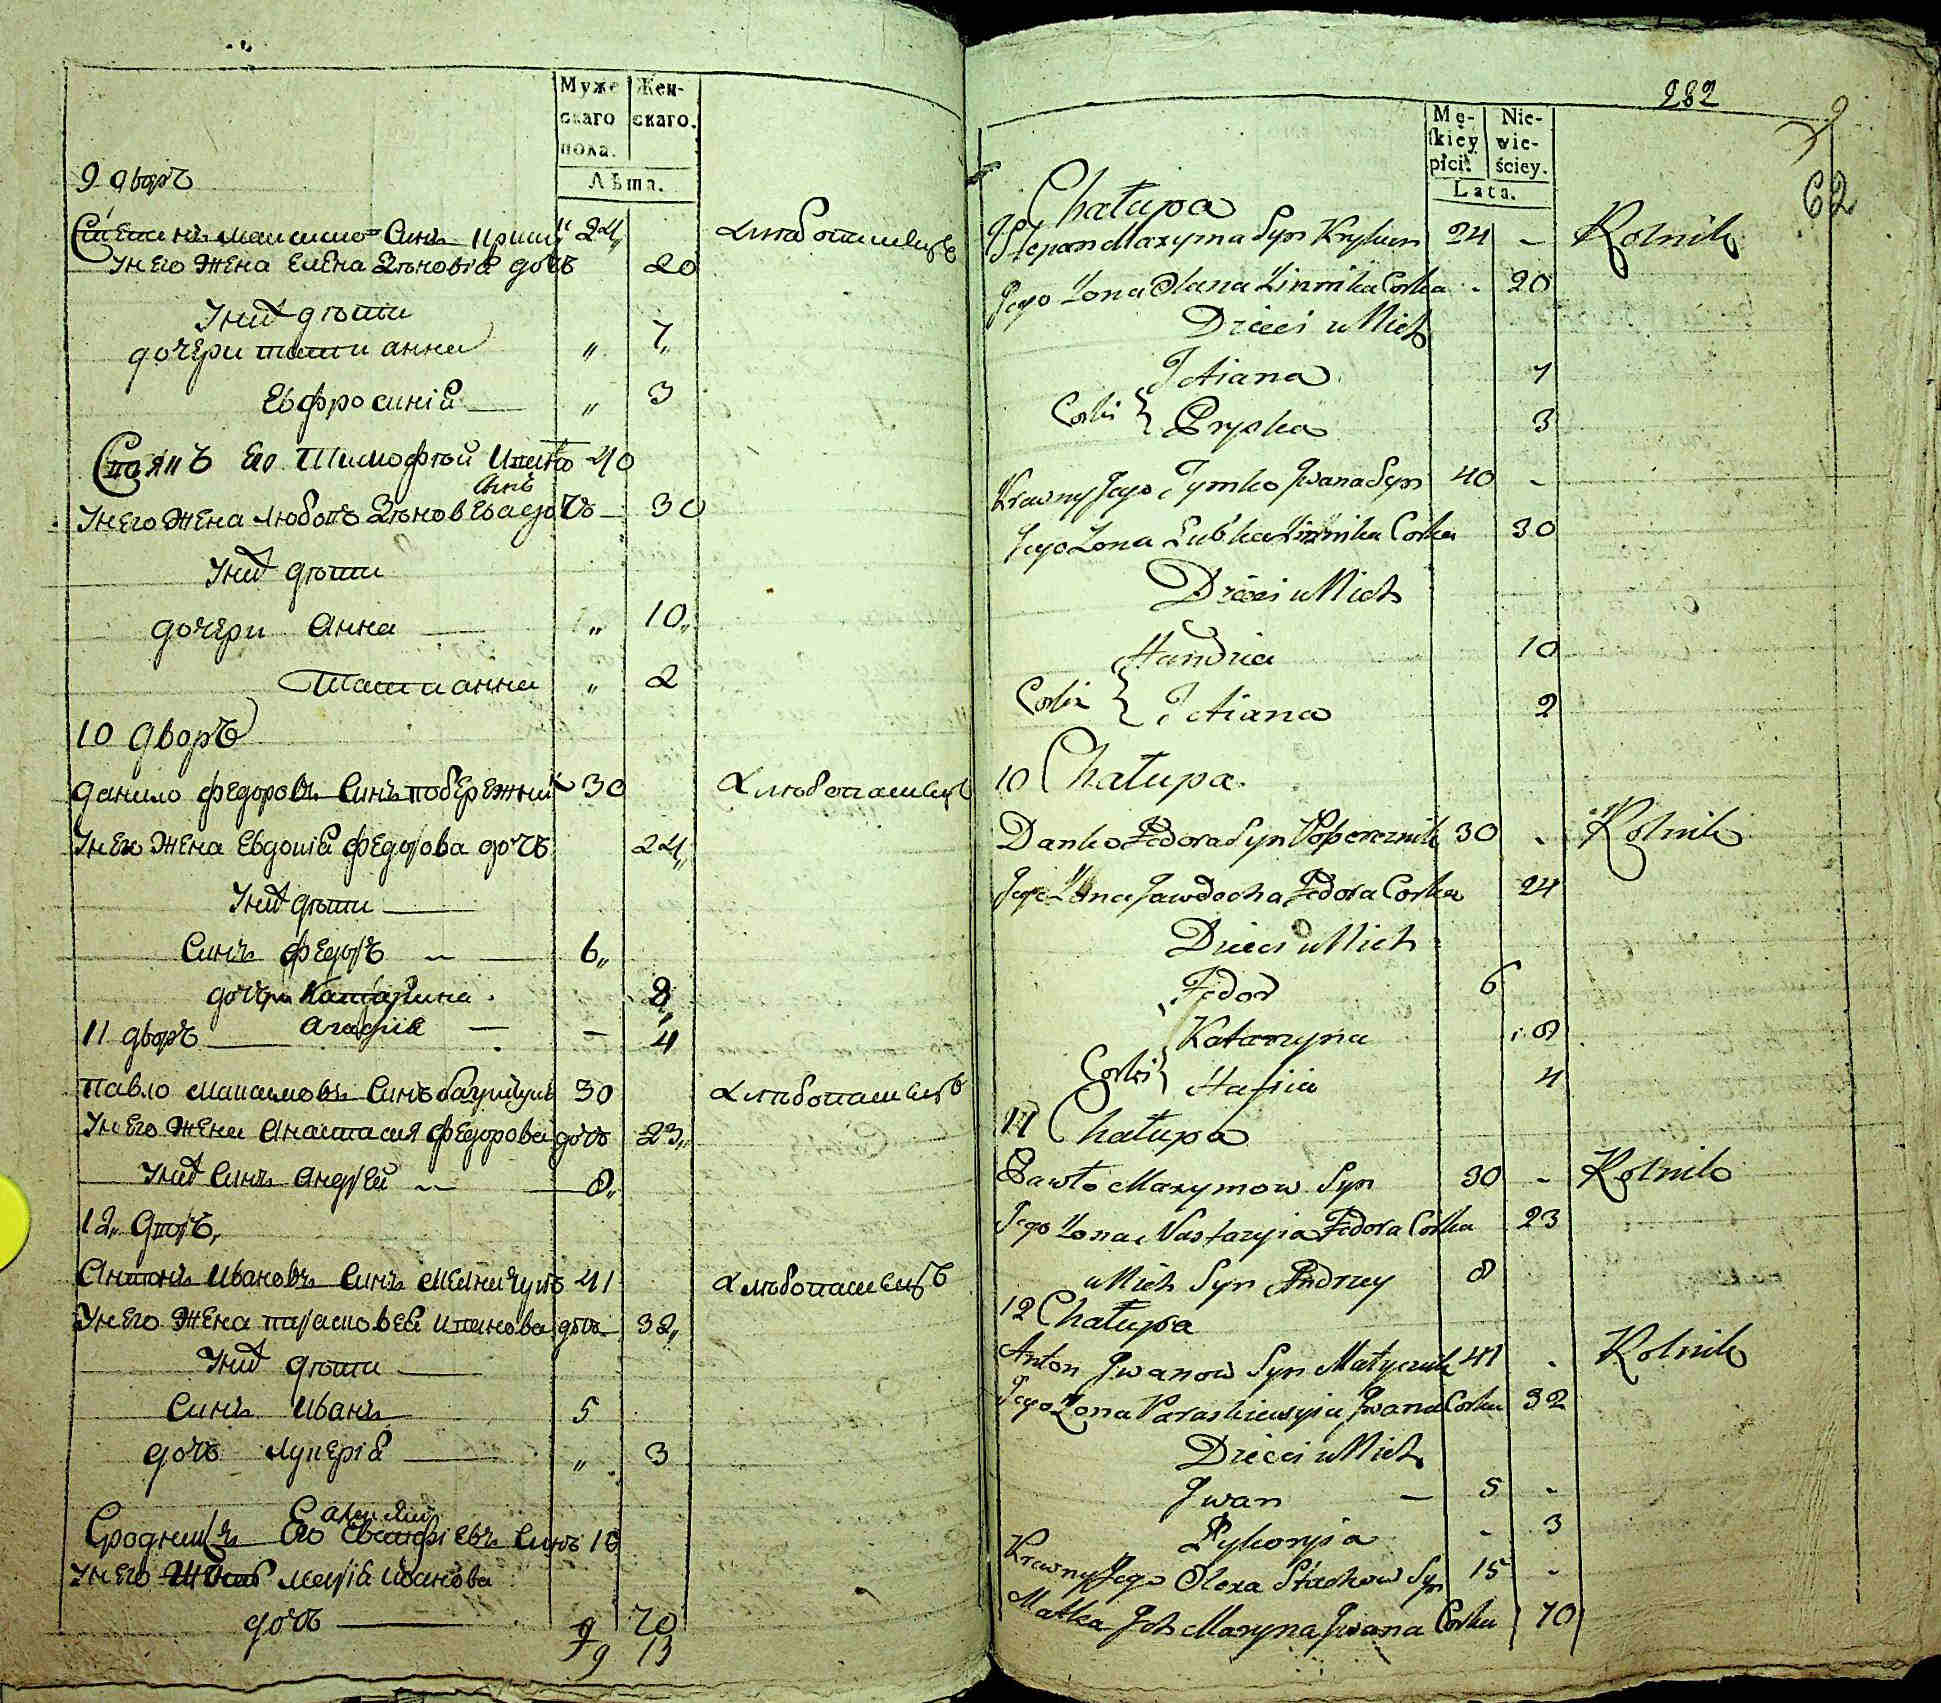 Муже
скаго
пола.
Жен-
скаго.
Лѣта.
9 дворъ
Степанъ Максимо Синъ 24
У него жена Елена Зѣновіа дочъ 20
У нихъ дѣти
дочери татианна „ 7
Евфросиніа „ 3
его Тимофтой 40
Синъ
У него жена Любовъ Зѣнов Ева дочъ 30
У нихъ дѣти
дочери Анна „ 10
Татианна „ 2
10 дворъ
данило федоровъ Синъ побережникъ 30 хлѣбопашецъ
У него жена Евдокіа федорова дочъ 24
У нихъ дѣти
Синъ федоръ 6
дочери Катарина 8
11 дворъ Агафіа 4
Павло Максимовъ Синъ 30 хлѣбопашецъ
У него жена Анастасия федорова дочъ 23
У нихъ Синъ Андрей 8
12 дворъ
Антонъ Ивановъ Синъ 41 хлѣбопашецъ
У него жена параскова Иванова дочъ 32
У нихъ дѣти
Синъ Иванъ 5
дочъ Лукеріа „ 3
Сродникъ Его Синъ 15
У него Маріа Иванова
дочъ 70
9 13
282
62
Mę-
skiey
płci.
Nie-
wie-
ściey.
Lata.
Chałupa
Stepan Maxyma Syn 24 - Rolnik
Jego Zona Olana Zinnika Corka - 20
Dzieci u Nich
Tetiana 7
Corki { Pryska 3
Krewny Jego Tymko Jwana Syn 40 -
Jego Zona Lubka Zinnika Corka 30
Dzieci u Nich
Handzia 10
Corki { Tetiana 2
10 Chałupa
Danko Fedora Syn Pobereznik 30 - Rolnik
Jego Zona Jawdocha Fedora Corka 24
Dzieci u Nich
Fedor 6
Katarzyna 8
Corki } Hafiia 4
11 Chałupa
Pawło Maxymow Syn 30 - Rolnik
Jego Zona Nastazyia Fedora Corka 23
u Nich Syn Andrzey 8
12 Chałupa
Anton Jwanow Syn 41 - Rolnik
Jego Zona Paraskiewyia Jwana Corka 32
Dzieci u Nich
Jwan - 5 -
Łykoryia - 3
Krewny Jego Olexa Stachow Syn 15 -
Matka Jch Maryna Jwana Corka 70